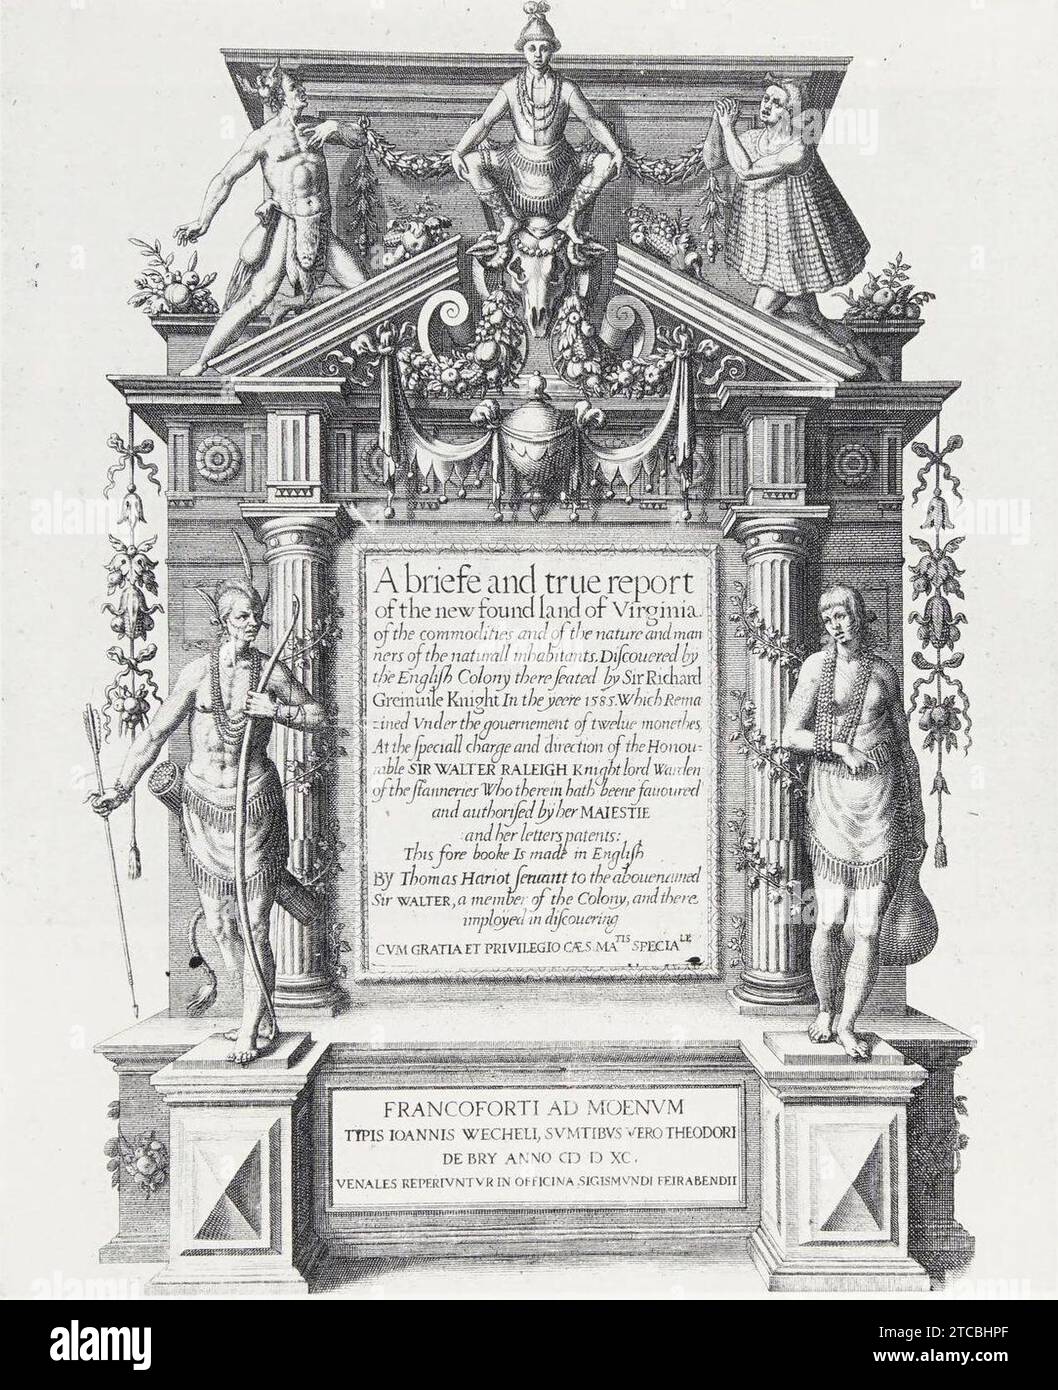 A briefe and true report
of the new found land of Virginia
of the commodities and of the nature and man
ners of the naturall inhabitants. Diſcouered by
the Engliſh Colony there ſeated by Sir Richard
Greinuile Knight In the yeere 1585. Which Rema
ined Vnder the gouernement of twelue monethes,
At the ſpeciall charge and direction of the Honou-
rable SIR WALTER RALEIGH Knight lord Warden
of the ſtanneries Who therein hath beene fauoured
and authoriſed by her MAIESTIE
:and her letters patents:
This fore booke Is made in Engliſh
By Thomas Hariot ſeruant to the abouenamed
Sir WALTER, a member of the Colony, and there
imployed in diſcouering
CVM GRATIA ET PRIVILEGIO CÆS. MATIS SPECIALE
FRANCOFORTI AD MOENVM
TYPIS IOANNIS WECHELI, SVMTIBVS VERO THEODORI
DE BRY ANNO CIƆ IƆ XC.
VENALES REPERIVNTVR IN OFFICINA SIGISMVNDI FEIRABENDII
alamy
Image ID: 2TCBHPF
www.alamy.com